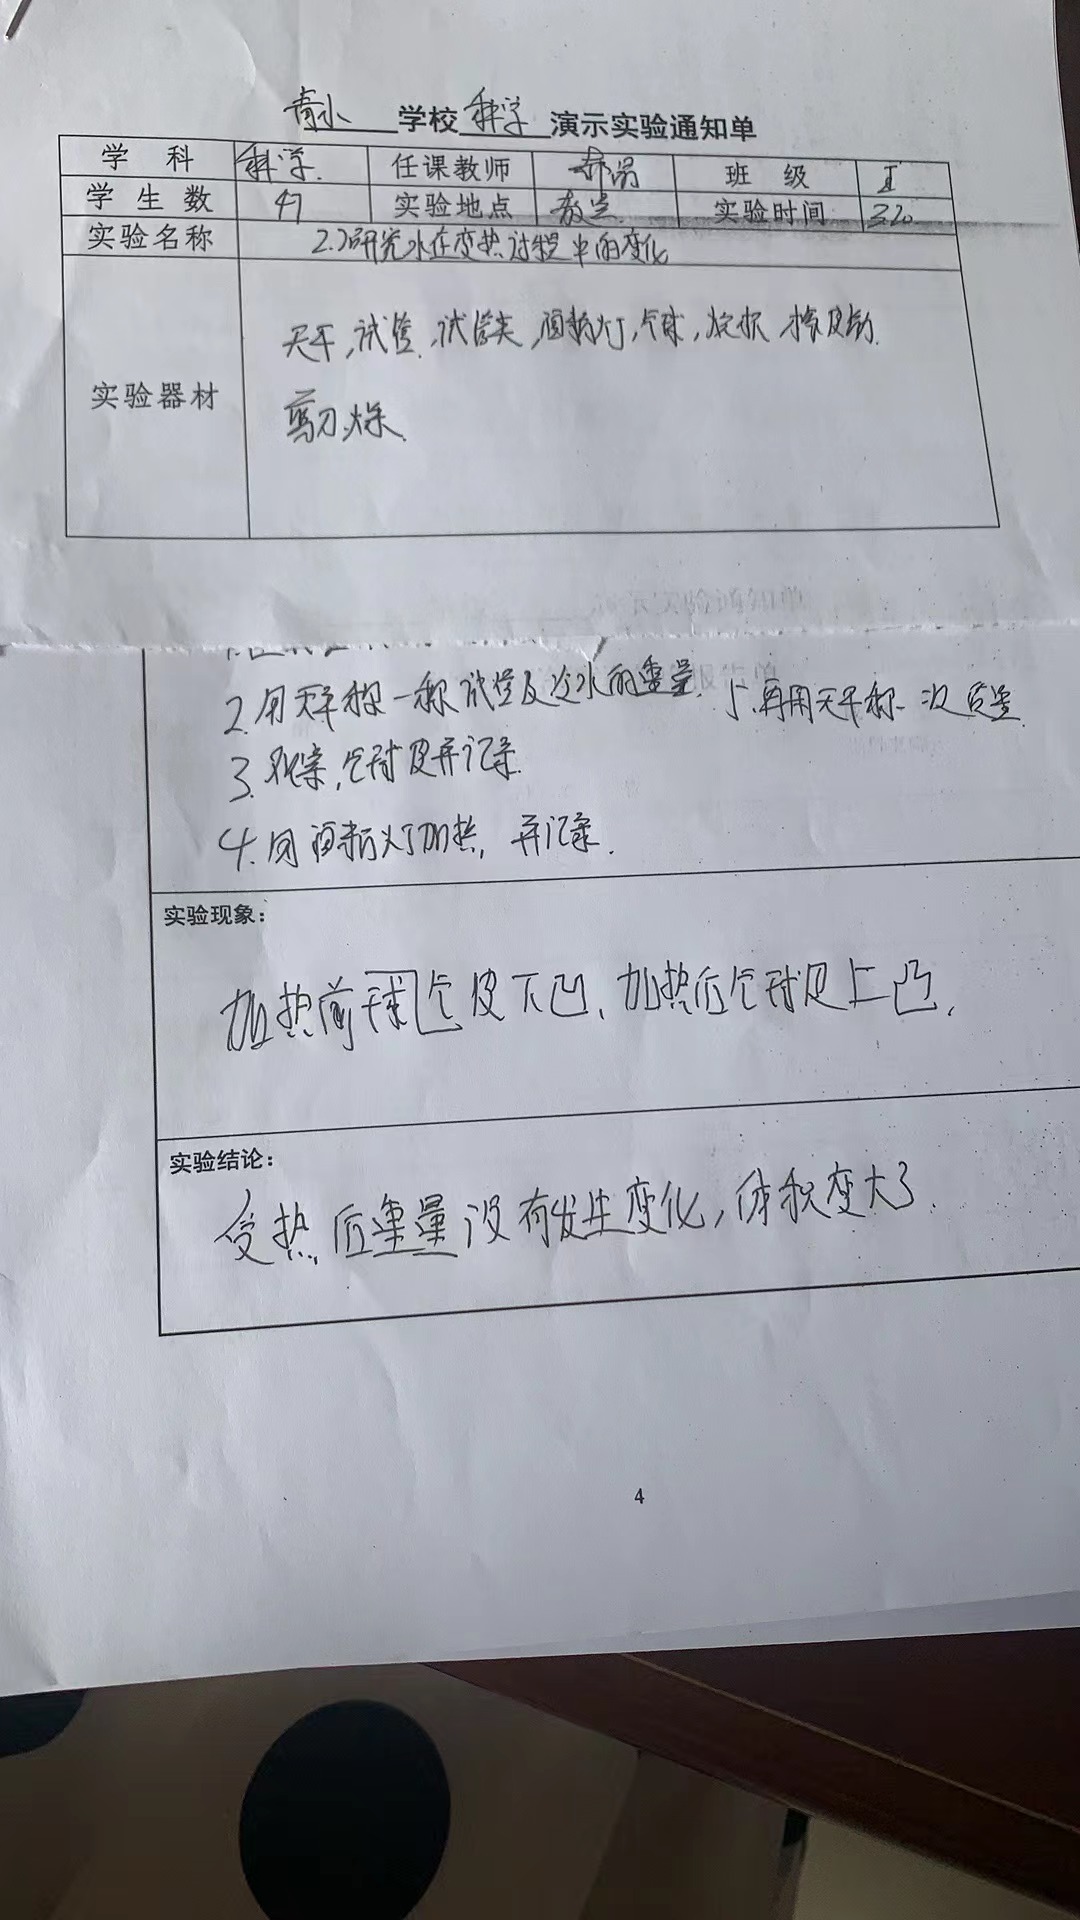 青小 学校 科学 演示实验通知单
学 科 科学 任课教师 班 级
学 生 数 47 实验地点 教室 实验时间 3.20
实验名称 2.2研究水在变热过程中的变化
天平,试管,试管夹,酒精灯,气球,烧杯,橡皮筋.
实验器材
剪刀,水.
2.用天平称一称试管及冷水的重量. 5.再用天平称一次质量
3.观察,气球皮并记录.
4.用酒精灯加热,并记录.
实验现象:
加热前球气皮下凹,加热后气球皮上凸.
实验结论:
受热后重量没有发生变化,体积变大了.
4